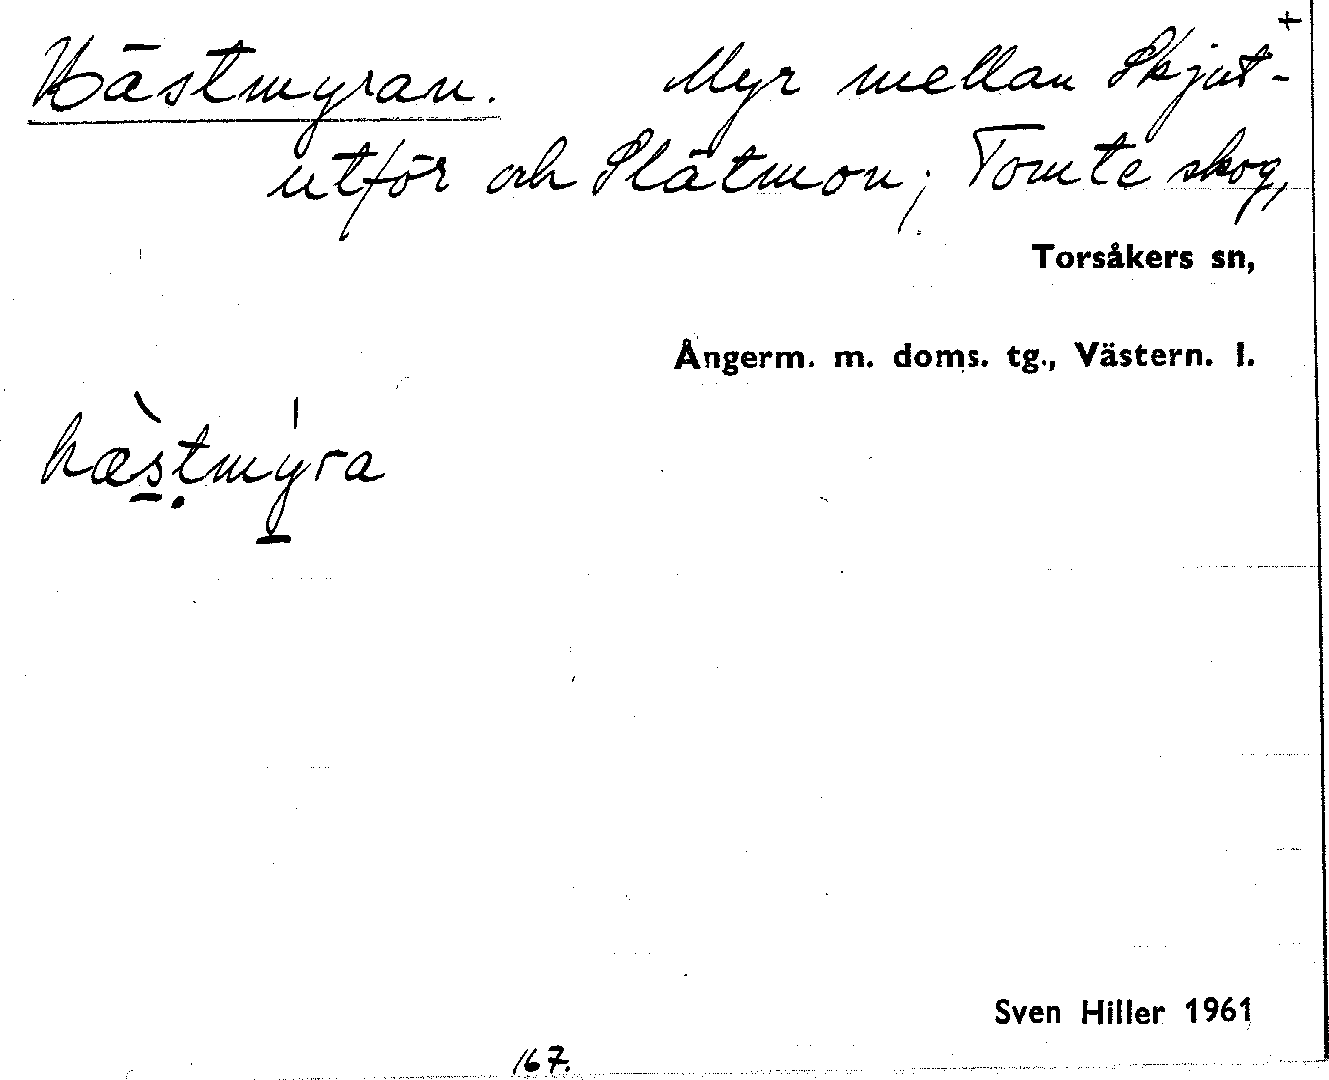 +
Hästmyran. Myr mellan Skjut-
utför och Slåtmon; Tomte skog,
Torsåkers sn,
Ångerm. m. doms. tg., Västern. l.
hæ̀stmýra
Sven Hiller 1961
167.